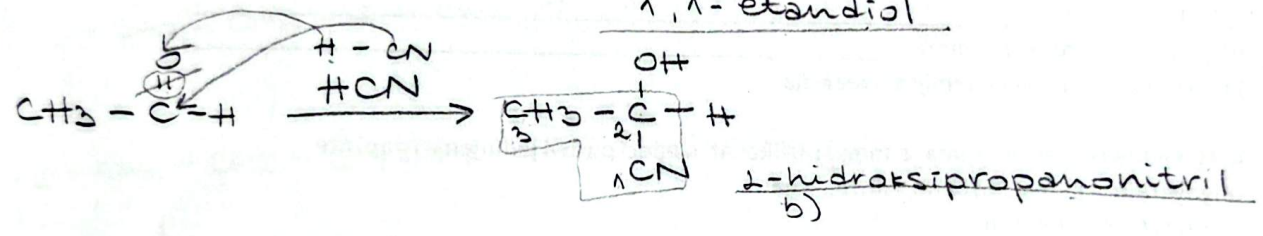 1,1-etandiol
H - CN
O OH
HCN
CH3 - C - H CH3 - C - H
3 2
1 CN
2-hidroksipropanonitril
b)